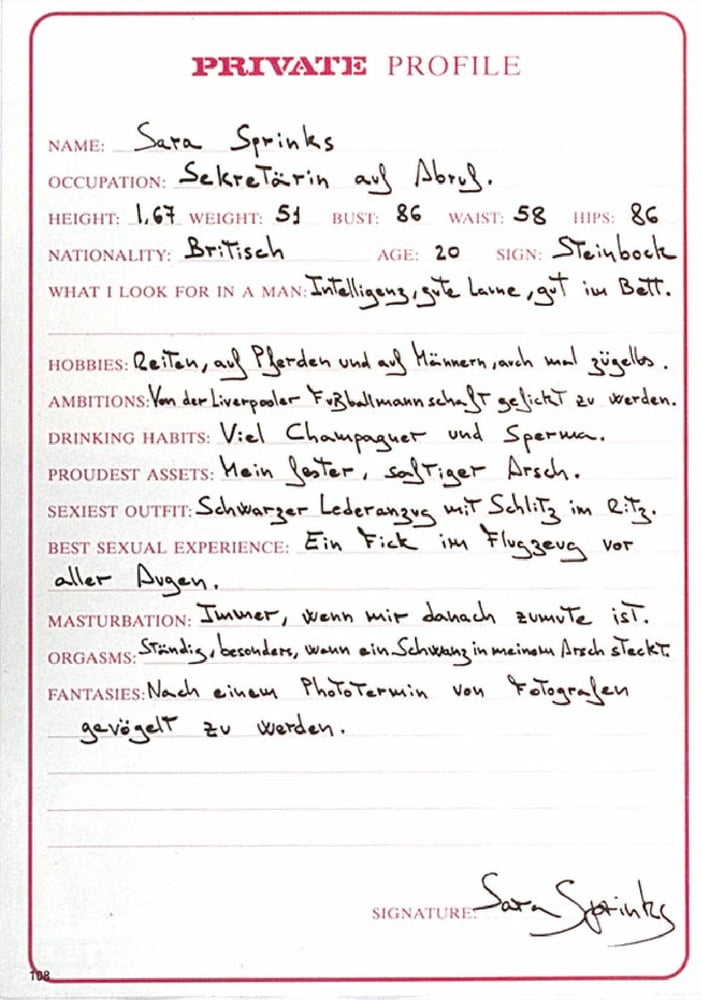 PRIVATE PROFILE
NAME: Sara Sprinks
OCCUPATION: Sekretärin auf Abruf.
HEIGHT: 1,67 WEIGHT: 51 BUST: 86 WAIST: 58 HIPS: 86
NATIONALITY: Britisch AGE: 20 SIGN: Steinbock
WHAT I LOOK FOR IN A MAN: Intelligenz, gute Laune, gut im Bett.
HOBBIES: Reiten, auf Pferden und auf Männern, auch mal zügellos.
AMBITIONS: Von der Liverpooler Fußballmannschaft gefickt zu werden.
DRINKING HABITS: Viel Champagner und Sperma.
PROUDEST ASSETS: Mein fester, saftiger Arsch.
SEXIEST OUTFIT: Schwarzer Lederanzug mit Schlitz im Ritz.
BEST SEXUAL EXPERIENCE: Ein Fick im Flugzeug vor
aller Augen.
MASTURBATION: Immer, wenn mir danach zumute ist.
ORGASMS: Ständig, besonders, wenn ein Schwanz in meinem Arsch steckt.
FANTASIES: Nach einem Phototermin von Fotografen
gevögelt zu werden.
SIGNATURE: Sara Sprinks
108